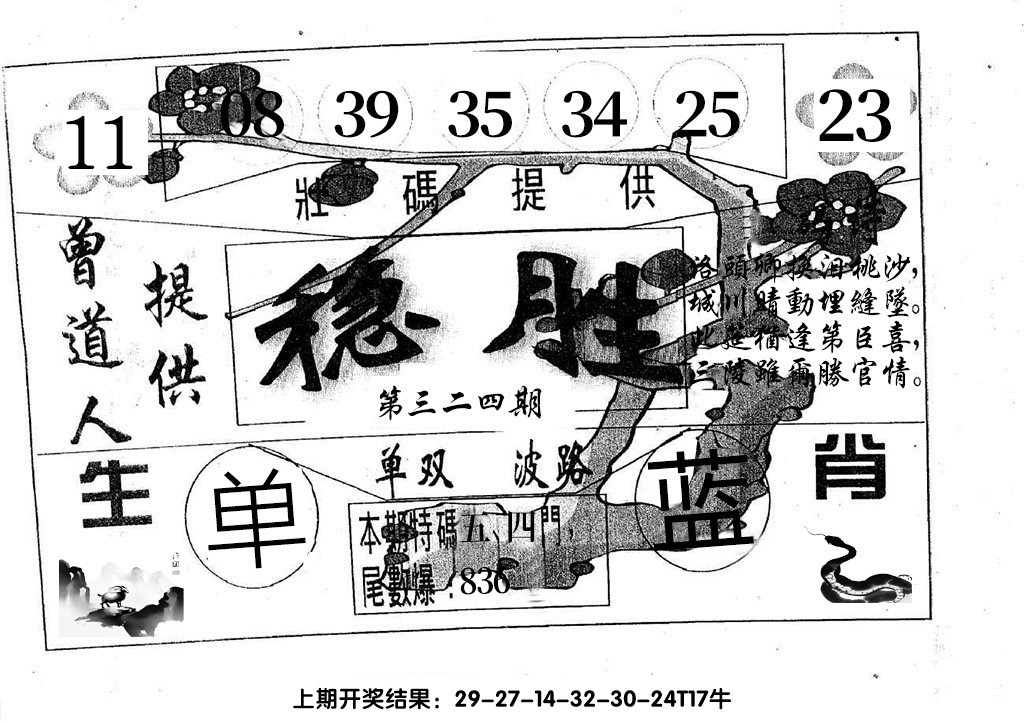 11 08 39 35 34 25 23
壯碼提供
曾道人
提供
稳胜
第三二四期
洛頭卿换泪桃沙，
城川睛動埋縫墜。
此 猶逢第臣喜，
三陵雖爾勝官情。
单双 波路
生肖
单
蓝
本期特碼五、四門，
尾數爆：836
上期开奖结果：29-27-14-32-30-24T17牛